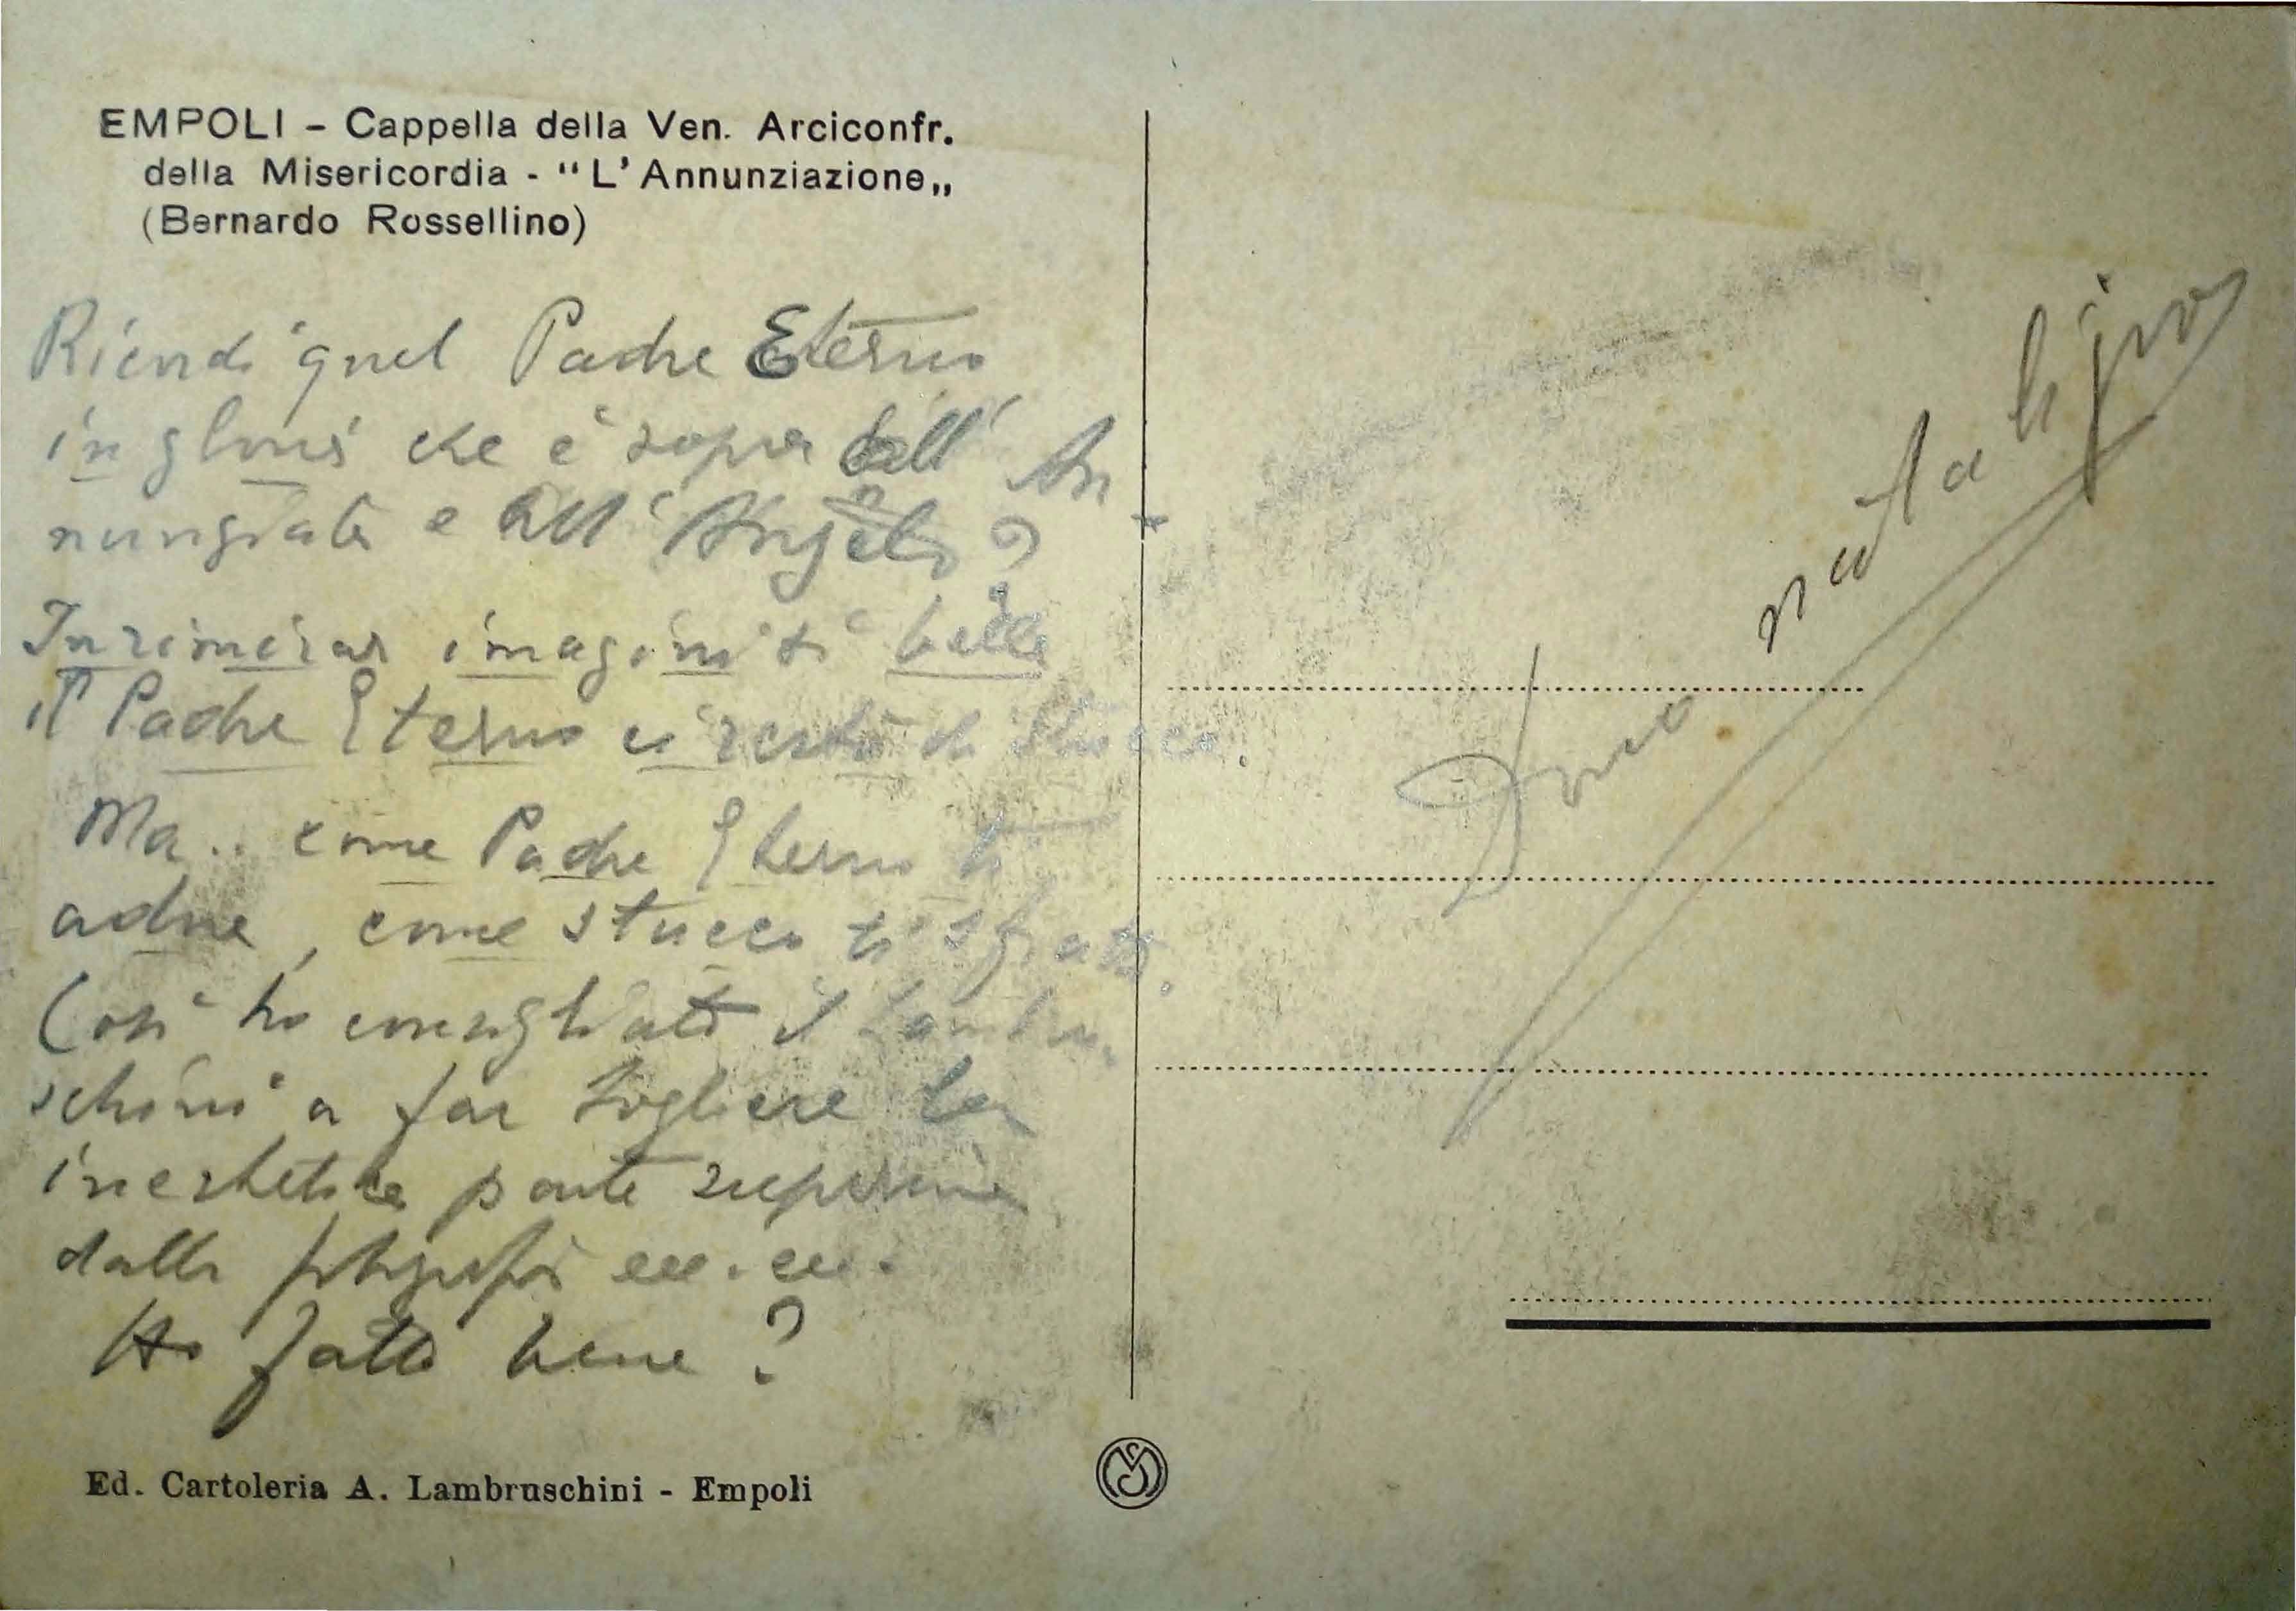 EMPOLI – Cappella della Ven. Arciconfr.
della Misericordia - “L'Annunziazione„
(Bernardo Rossellino)
quel Padre Eterno
in che è sopra all' An
nunziata e all' Angelo?
imagini sì belle
il Padre Eterno ci restò di stucco.
Ma.. come Padre Eterno ti
adora, come stucco ti sfratta.
Così ho consigliato il Lambru-
schini a far togliere la
inestetica parte superiore
dalla fotografia ecc. ecc.
Ho fatto bene?
Ed. Cartoleria A. Lambruschini - Empoli